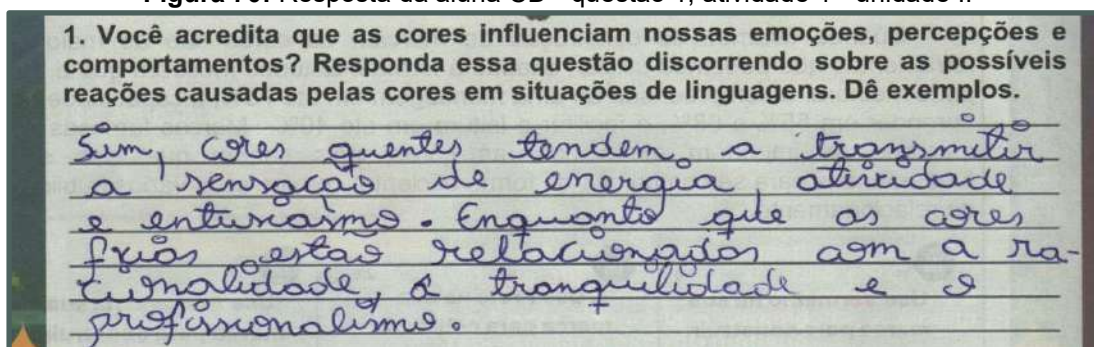 1. Você acredita que as cores influenciam nossas emoções, percepções e
comportamentos? Responda essa questão discorrendo sobre as possíveis
reações causadas pelas cores em situações de linguagens. Dê exemplos.
Sim, cores quentes tendem a transmitir
a sensação de energia atividade
e entusiasmo. Enquanto que as cores
frias estão relacionadas com a ra-
cionalidade, a tranquilidade e o
profissionalismo.